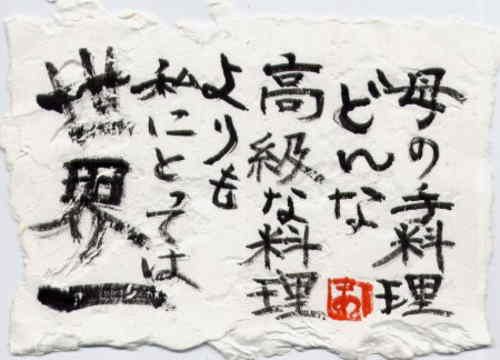 母の手料理
どんな
高級な料理
よりも
私にとっては
世界一